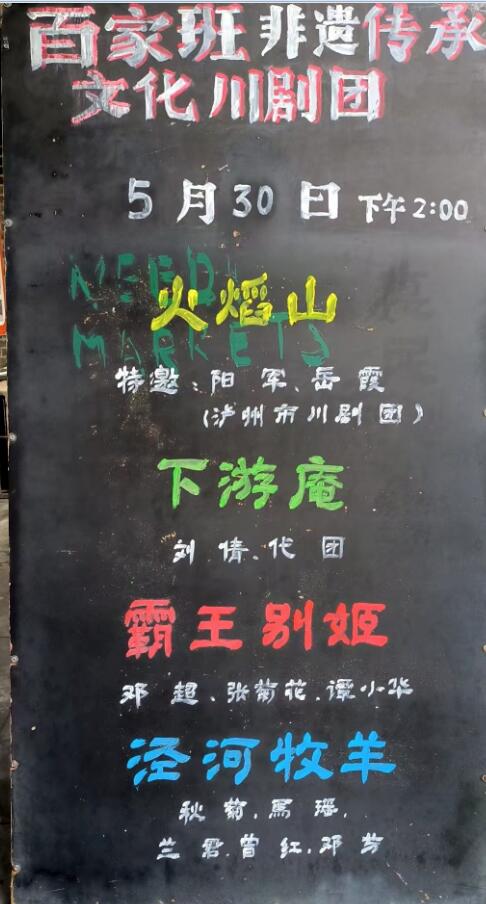 百家班非遗传承
文化川剧团
5月30日 下午2:00
NEED
火熖山
MARKETS
特邀：阳军、岳霞
(泸州市川剧团)
下游庵
刘倩、代团
霸王别姬
邓超、张菊花、谭小华
泾河牧羊
秋菊、馬瑶、
兰君、曾红、邓芳